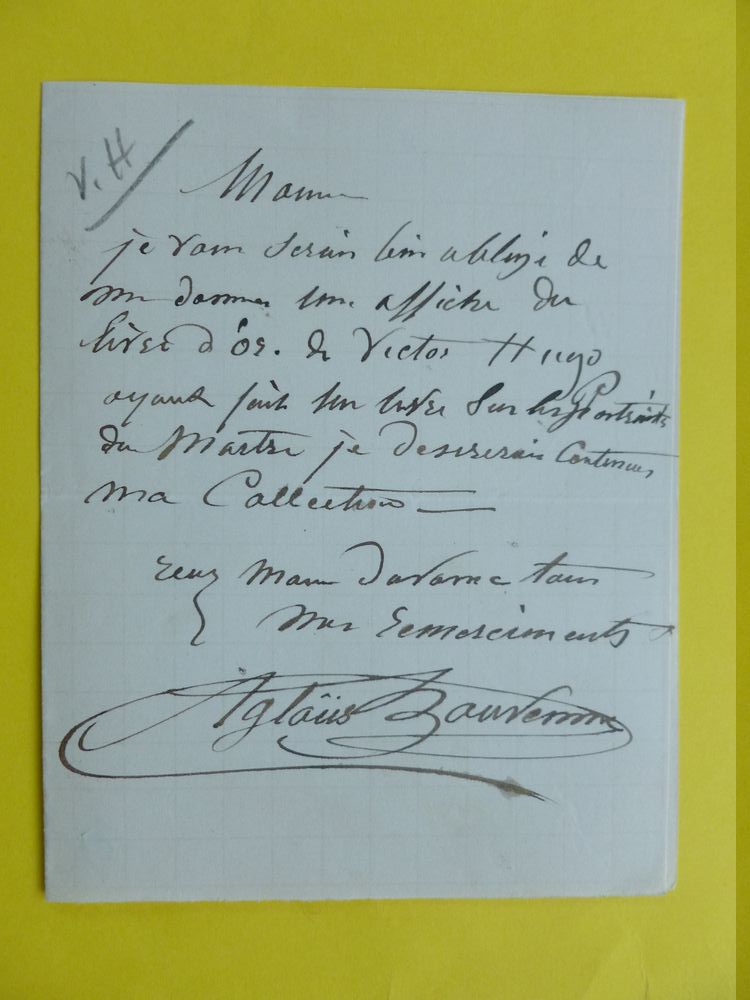 V. H
Monsieur
je vous serais bien obligé de
me donner une affiche du
livre d'or. de Victor Hugo
ayant fait un livre sur les Portraits
du Maitre je desirerais continuer
ma Collection
Monsieur d'avance tous
mes remerciments
Aglaüs Bouvenne